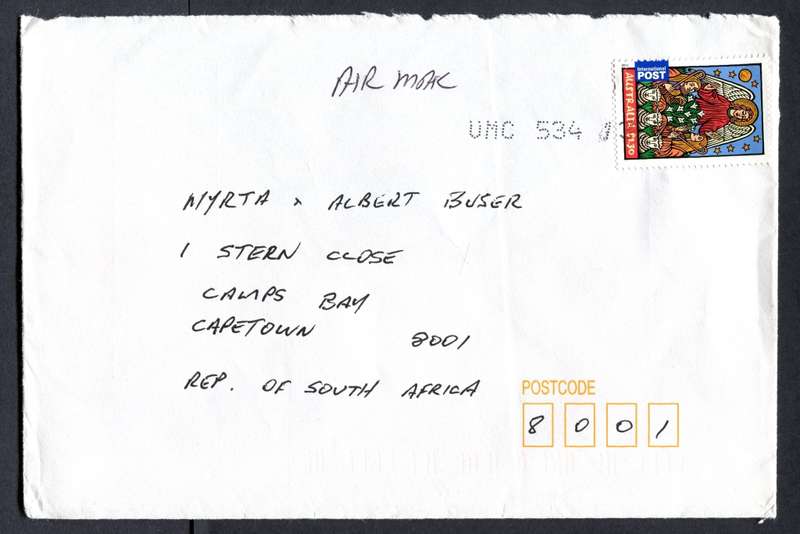 AIR MAIL
International
POST
AUSTRALIA $1.30
UMC 534
MYRTA & ALBERT BUSER
1 STERN CLOSE
CAMPS BAY
CAPETOWN 8001
REP. OF SOUTH AFRICA
POSTCODE
8 0 0 1